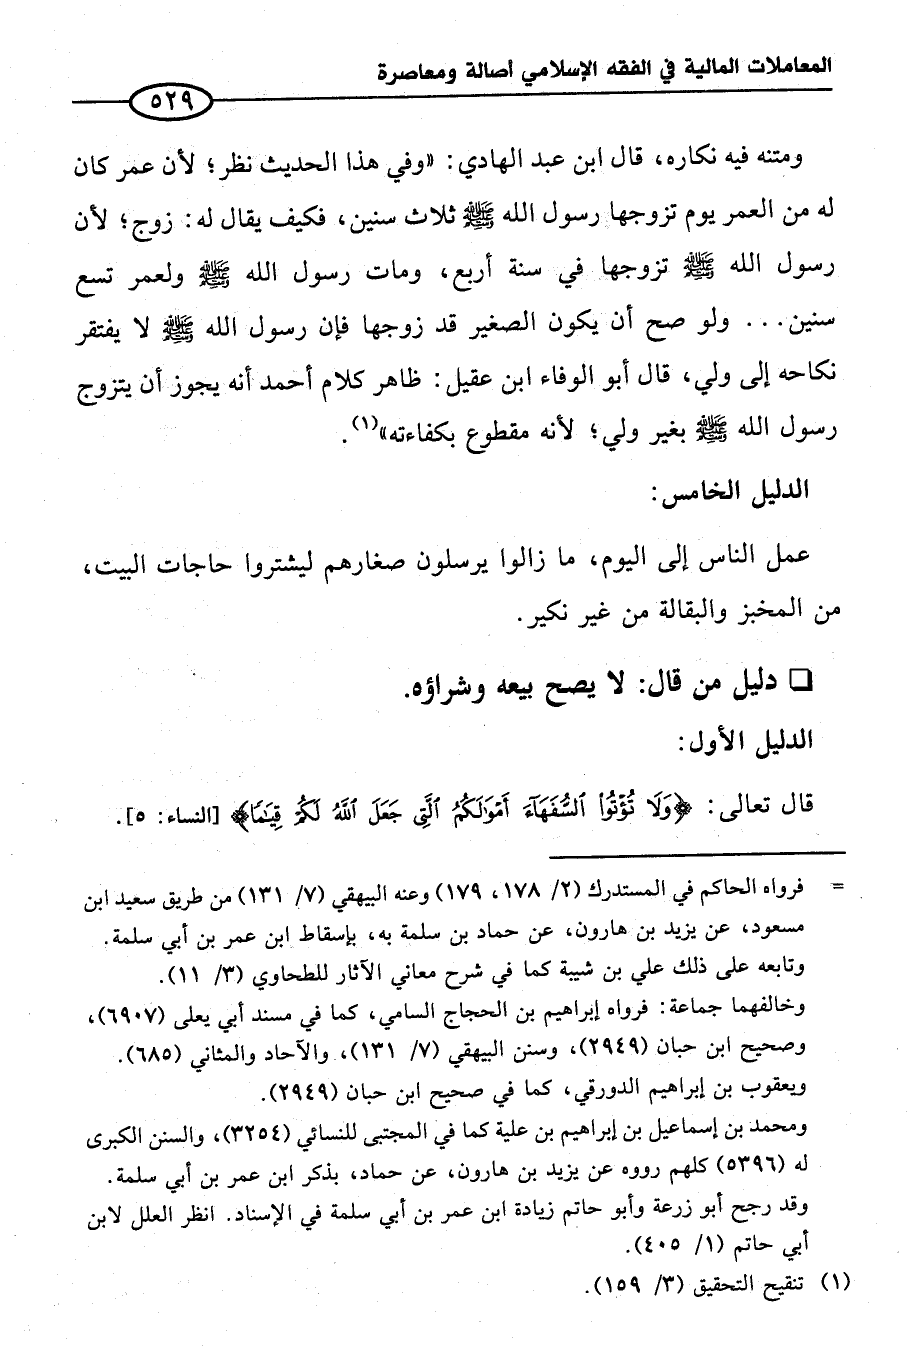 المعاملات المالية في الفقه الإسلامي أصالة ومعاصرة
٥٢٩
ومتنه فيه نكاره، قال ابن عبد الهادي: «وفي هذا الحديث نظر؛ لأن عمر كان
له من العمر يوم تزوجها رسول الله ﷺ ثلاث سنين، فكيف يقال له: زوج؛ لأن
رسول الله ﷺ تزوجها في سنة أربع، ومات رسول الله ﷺ ولعمر تسع
سنين... ولو صح أن يكون الصغير قد زوجها فإن رسول الله ﷺ لا يفتقر
نكاحه إلى ولي، قال أبو الوفاء ابن عقيل: ظاهر كلام أحمد أنه يجوز أن يتزوج
رسول الله ﷺ بغير ولي؛ لأنه مقطوع بكفاءته»(١).
الدليل الخامس:
عمل الناس إلى اليوم، ما زالوا يرسلون صغارهم ليشتروا حاجات البيت،
من المخبز والبقالة من غير نكير.
❏ دليل من قال: لا يصح بيعه وشراؤه.
الدليل الأول:
قال تعالى: ﴿وَلَا تُؤْتُوا۟ ٱلسُّفَهَآءَ أَمْوَٰلَكُمُ ٱلَّتِى جَعَلَ ٱللَّهُ لَكُمْ قِيَٰمًا﴾ [النساء: ٥].
= فرواه الحاكم في المستدرك (٢/ ١٧٨، ١٧٩) وعنه البيهقي (٧/ ١٣١) من طريق سعيد ابن
مسعود، عن يزيد بن هارون، عن حماد بن سلمة به، بإسقاط ابن عمر بن أبي سلمة.
وتابعه على ذلك علي بن شيبة كما في شرح معاني الآثار للطحاوي (٣/ ١١).
وخالفهما جماعة: فرواه إبراهيم بن الحجاج السامي، كما في مسند أبي يعلى (٦٩٠٧)،
وصحيح ابن حبان (٢٩٤٩)، وسنن البيهقي (٧/ ١٣١)، والآحاد والمثاني (٦٨٥).
ويعقوب بن إبراهيم الدورقي، كما في صحيح ابن حبان (٢٩٤٩).
ومحمد بن إسماعيل بن إبراهيم بن علية كما في المجتبى للنسائي (٣٢٥٤)، والسنن الكبرى
له (٥٣٩٦) كلهم رووه عن يزيد بن هارون، عن حماد، بذكر ابن عمر بن أبي سلمة.
وقد رجح أبو زرعة وأبو حاتم زيادة ابن عمر بن أبي سلمة في الإسناد. انظر العلل لابن
أبي حاتم (١/ ٤٠٥).
(١) تنقيح التحقيق (٣/ ١٥٩).